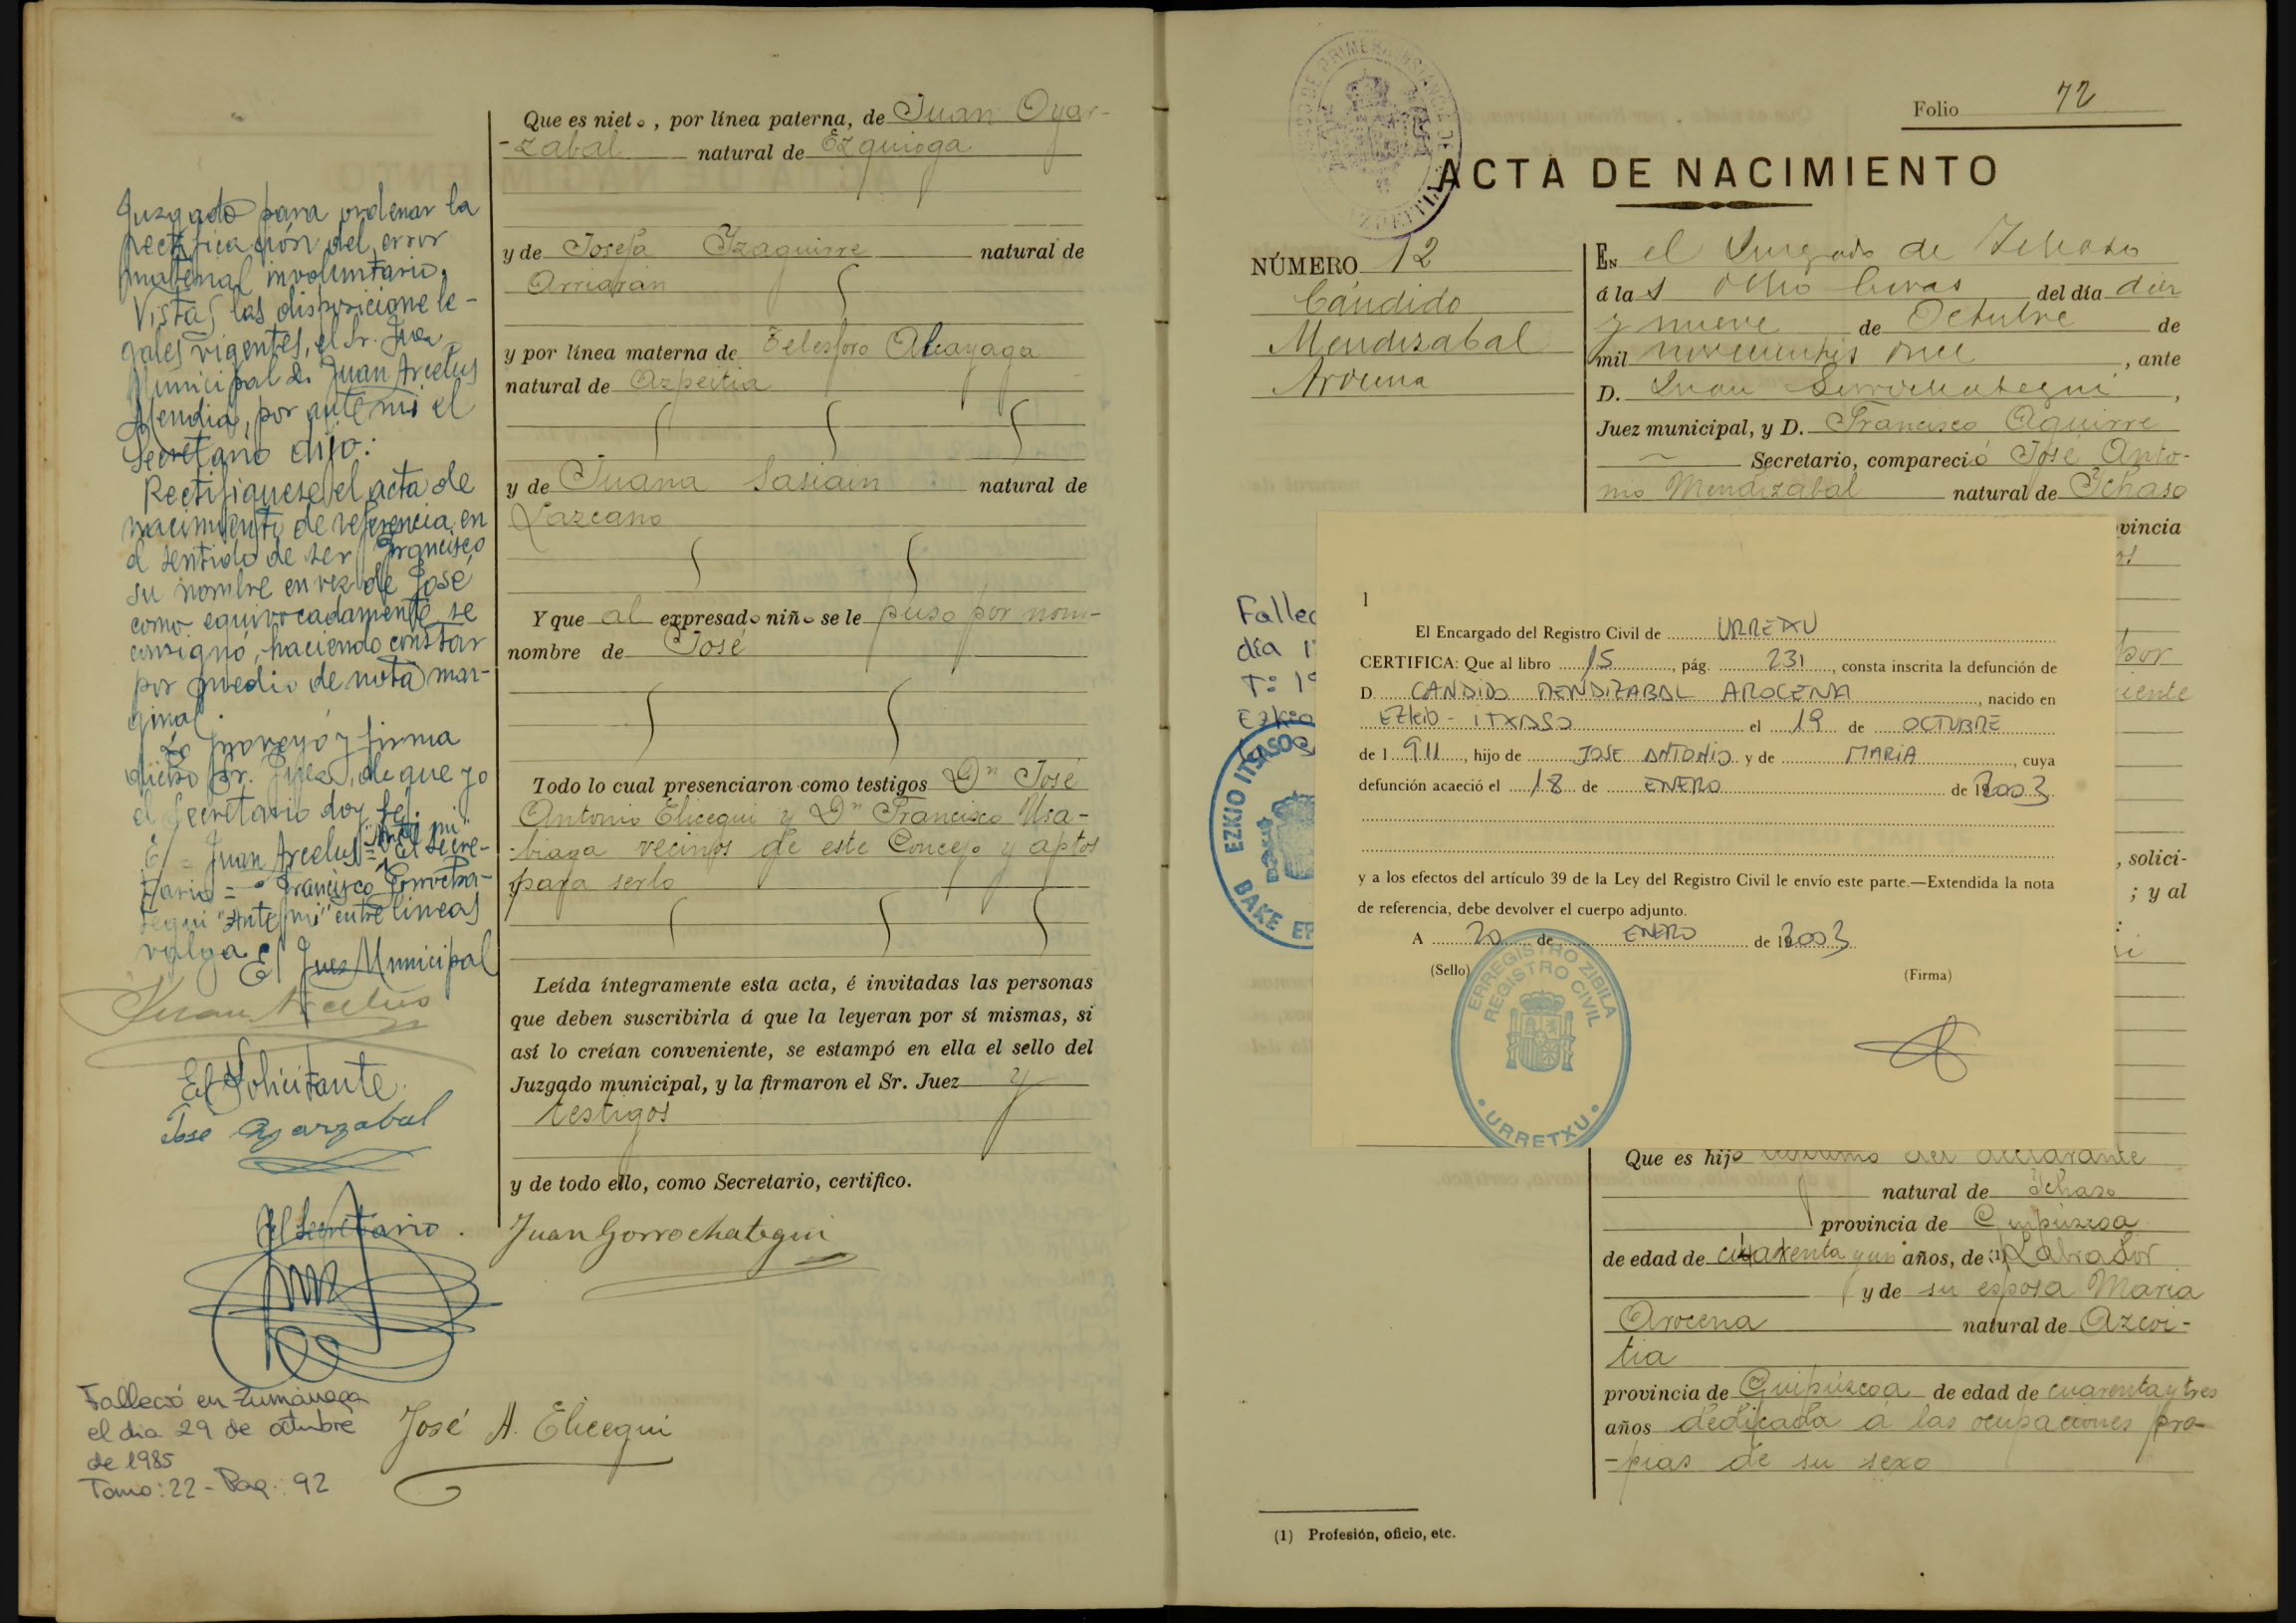 Juzgado para ordenar la
rectificación del error
material involuntario,
Vistas las disposicione le-
gales vigentes, el Sr. Juez
Municipal D. Juan Arcelus
Mendia, por ante mi el
Secretario dijo:
Rectifiquese el acta de
nacimiento de referencia en
el sentido de ser Francisco
su nombre en vez de José
como equivocadamente se
consignó, haciendo constar
por medio de nota mar-
ginal.
Lo proveyó y firma
dicho Sr. Juez, de que yo
el Secretario doy fe.
"Ante mi"
E/ = Juan Arcelus = El Secre-
tario = Francisco Gorrocha-
tegui "Ante mi" entre lineas
valga.
El Juez Municipal
Juan Arcelus
El Solicitante.
José Oyarzabal
El Secretario.
Falleció en Zumárraga
el dia 29 de octubre
de 1985
Tomo: 22 - Pag.: 92
Que es nieto, por línea paterna, de Juan Oyar-
-zabal natural de Ezquioga
y de Josefa Yzaguirre natural de
Arriarán
y por línea materna de Telesforo Alcayaga
natural de Azpeitia
y de Juana Sasiain natural de
Lazcano
Y que al expresado niño se le puso por nom-
nombre de José
Todo lo cual presenciaron como testigos Dn José
Antonio Elicegui y Dn Francisco Usa-
-biaga vecinos de este Concejo y aptos
para serlo
Leída íntegramente esta acta, é invitadas las personas
que deben suscribirla á que la leyeran por sí mismas, si
así lo creían conveniente, se estampó en ella el sello del
Juzgado municipal, y la firmaron el Sr. Juez y
testigos
y de todo ello, como Secretario, certifico.
Juan Gorrochategui
José A. Elicegui
Folio 72
ACTA DE NACIMIENTO
NÚMERO 12
Cándido
Mendizabal
Arocena
EN el Juzgado de Ichaso
á las ocho horas del día diez
y nueve de Octubre de
mil novecientos once, ante
D. Juan Gorrochategui,
Juez municipal, y D. Francisco Aguirre
Secretario, compareció José Anto-
nio Mendizabal natural de Ichaso
vincia
por
iente
, solici-
; y al
Fallec
día 1
T: 1
Ezkio
EZKIO ITSASO
BAKE EP
1
El Encargado del Registro Civil de URRETXU
CERTIFICA: Que al libro 15, pág. 231, consta inscrita la defunción de
D. CANDIDO MENDIZABAL AROCENA, nacido en
EZKIO - ITXASO el 19 de OCTUBRE
de 1 911, hijo de JOSE ANTONIO y de MARIA, cuya
defunción acaeció el 18 de ENERO de 2003
y a los efectos del artículo 39 de la Ley del Registro Civil le envío este parte.—Extendida la nota
de referencia, debe devolver el cuerpo adjunto.
A 20 de ENERO de 2003
(Sello)
(Firma)
ERREGISTRO ZIBILA
REGISTRO CIVIL
• URRETXU •
Que es hijo legítimo del declarante
natural de Ichaso
provincia de Guipúzcoa
de edad de cuarenta y un años, de (1) Labrador
y de su esposa Maria
Arocena natural de Azcoi-
tia
provincia de Guipúzcoa de edad de cuarenta y tres
años dedicada á las ocupaciones pro-
-pias de su sexo
(1) Profesión, oficio, etc.